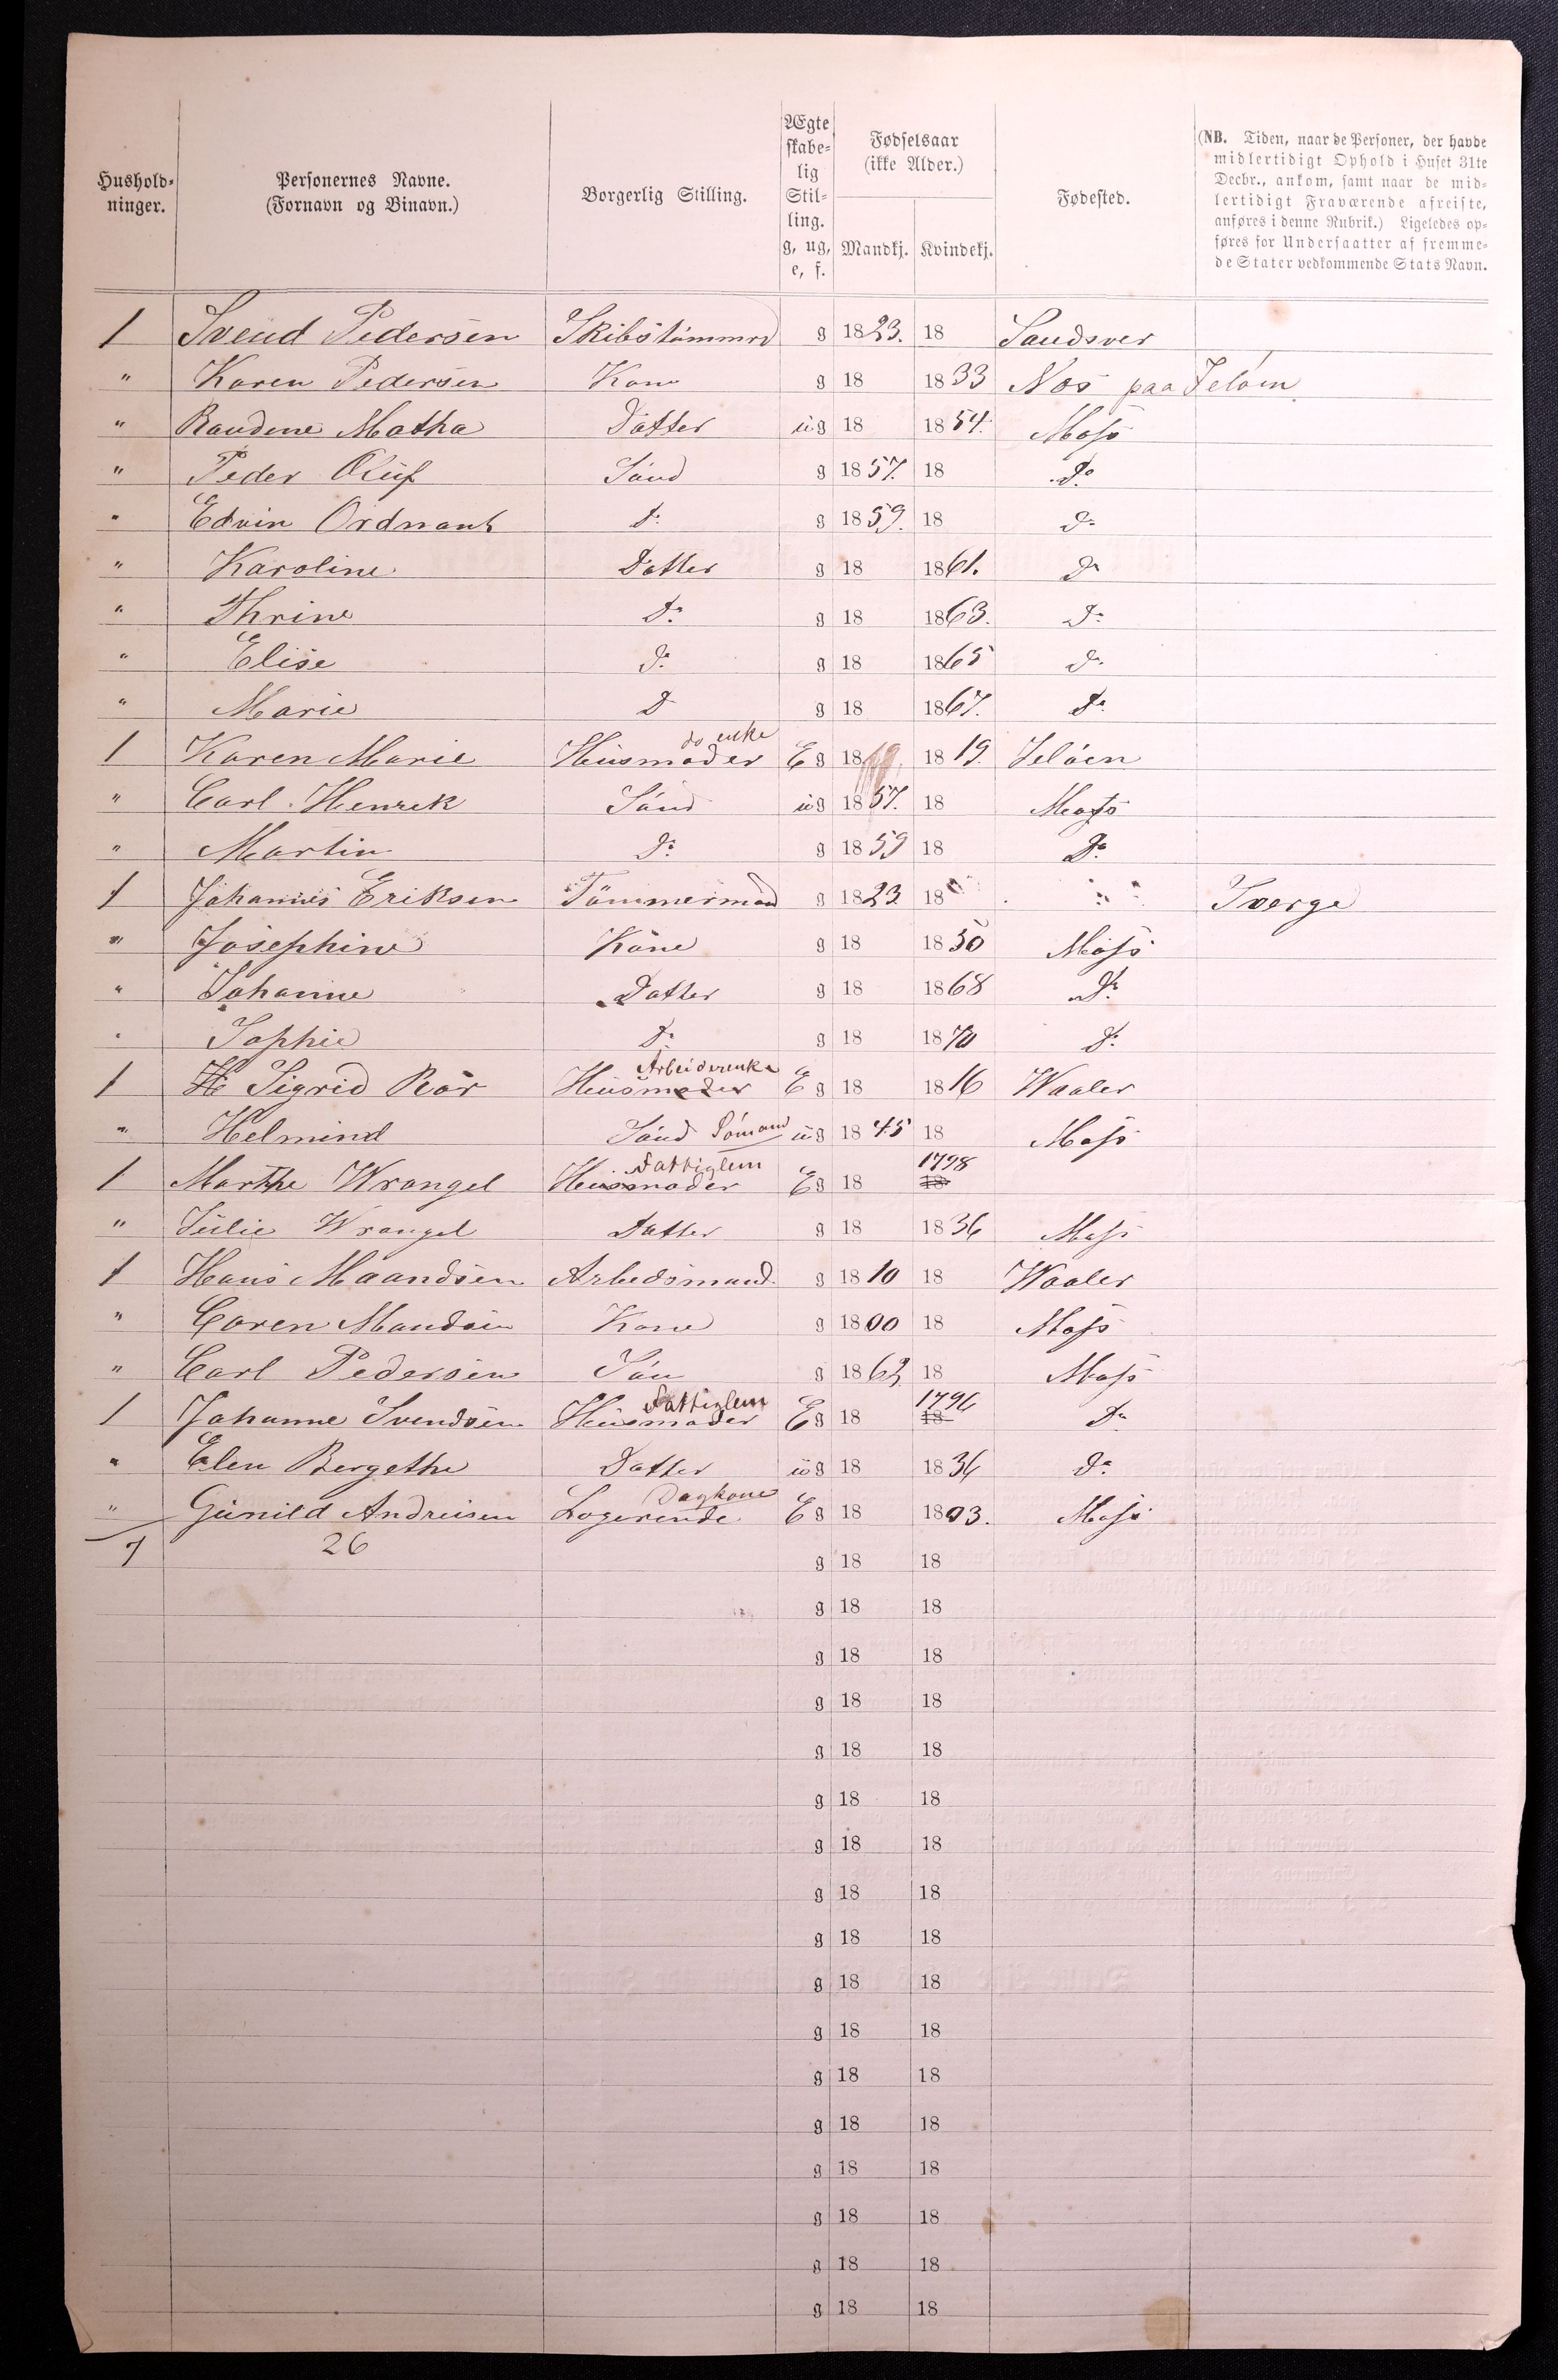 Hushold-ninger. | Personernes Navne. (Fornavn og Binavn.) | Borgerlig Stilling. | Ægteskabe-lig Stil-ling. g, ug, e, f. | Fødselsaar (ikke Alder.) Mandkj. | Kvindekj. | Fødested. | (NB. Tiden, naar de Personer, der havde midlertidigt Ophold i Huset 31te Decbr., ankom, samt naar de mid-lertidigt Fraværende afreiste, anføres i denne Rubrik.) Ligeledes op-føres for Undersaatter af fremme-de Stater vedkommende Stats Navn.
1 Svend Pedersen Skibstømmrd g 1823. 18 Sandsver
" Karen Pedersen Kone g 18 1833 Nos paa Jeløen
" Randene Matha Datter ug 18 1854. Moss
" Peder Oluf Sønd g 1857. 18 Do
" Edvin Ordnant Do g 1859. 18 Do
" Karoline Datter g 18 1861. Do
" Thrine Do g 18 1863. Do
" Elise Do g 18 1865 Do
" Marie D g 18 1867. Do
1 Karen Marie Husmoder do enke E g 18 1819. Jeløen
" Carl Henrik Sønd ug 1857. 18 Moss
" Martin Do g 1859 18 Do
1 Johannes Eriksen Tømmermand g 1823. 18 " " Sverge
" Josephine Kone g 18 1850 Moss
" Johanne Datter g 18 1868 Do
" Sophie Do g 18 1870 Do
1 Sigrid Rør Husmoder Arbeiderenke E g 18 1816 Waaler
" Helmind Sønd Sømand ug 1845 18 Moss
1 Marthe Wrangel Husmoder Fattiglem E g 18 1798
" Julie Wrangel Datter g 18 1836 Moss
1 Hans Maandsen Arbedsmand g 1810 18 Waaler
" Caren Mandsen Kone g 1800 18 Moss
" Carl Pedersen Søn g 1862 18 Moss
1 Johanne Svendsen Husmoder Fattiglem E g 18 1796 Do
" Elen Bergethe Datter ug 18 1836 Do
" Gunild Andreisen Logerende Dagkone E g 18 1803. Moss
7 26 g 18 18
g 18 18
g 18 18
g 18 18
g 18 18
g 18 18
g 18 18
g 18 18
g 18 18
g 18 18
g 18 18
g 18 18
g 18 18
g 18 18
g 18 18
g 18 18
g 18 18